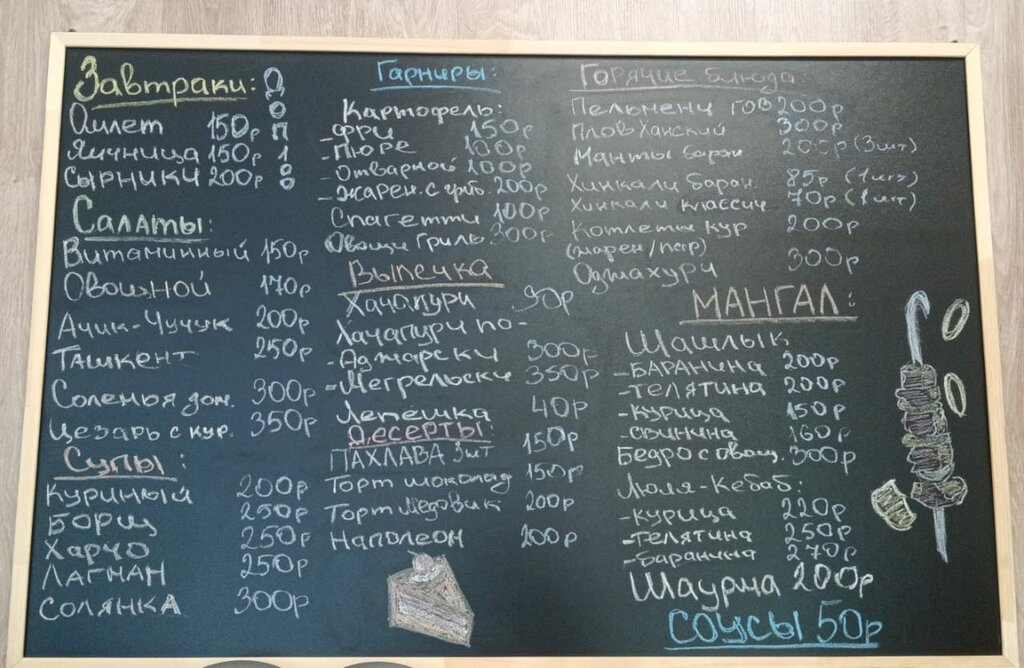 Завтраки:
Омлет 150р
Яичница 150р
Сырники 200р
До
П
1
8
Салаты:
Витаминный 150р
Овощной 170р
Ачик-Чучук 200р
Ташкент 250р
Соленья дом. 300р
Цезарь с кур. 350р
Супы:
Куриный 200р
Борщ 250р
Харчо 250р
Лагман 250р
Солянка 300р
Гарниры:
Картофель:
-фри 150р
-пюре 100р
-отварной 100р
-жарен. с гриб. 200р
Спагетти 100р
Овощи Гриль 300р
Выпечка
Хачапури 90р
Хачапури по-
-Аджарски 300р
-Мегрельски 350р
Лепешка 40р
Десерты:
ПАХЛАВА 3шт 150р
Торт шоколад 150р
Торт Медовик 200р
Наполеон 200р
Горячие блюда:
Пельмени гов 200р
Плов Ханский 300р
Манты баран 200р (3шт)
Хинкали баран. 85р (1шт)
Хинкали классич 70р (1шт)
Котлеты кур 200р
(жарен/пар)
Оджахури 300р
МАНГАЛ:
Шашлык
-БАРАНИНА 200р
-телятина 200р
-курица 150р
-свинина 160р
Бедро с овощ. 300р
Люля-Кебаб:
-курица 220р
-телятина 250р
-баранина 270р
Шаурма 200р
Соусы 50р